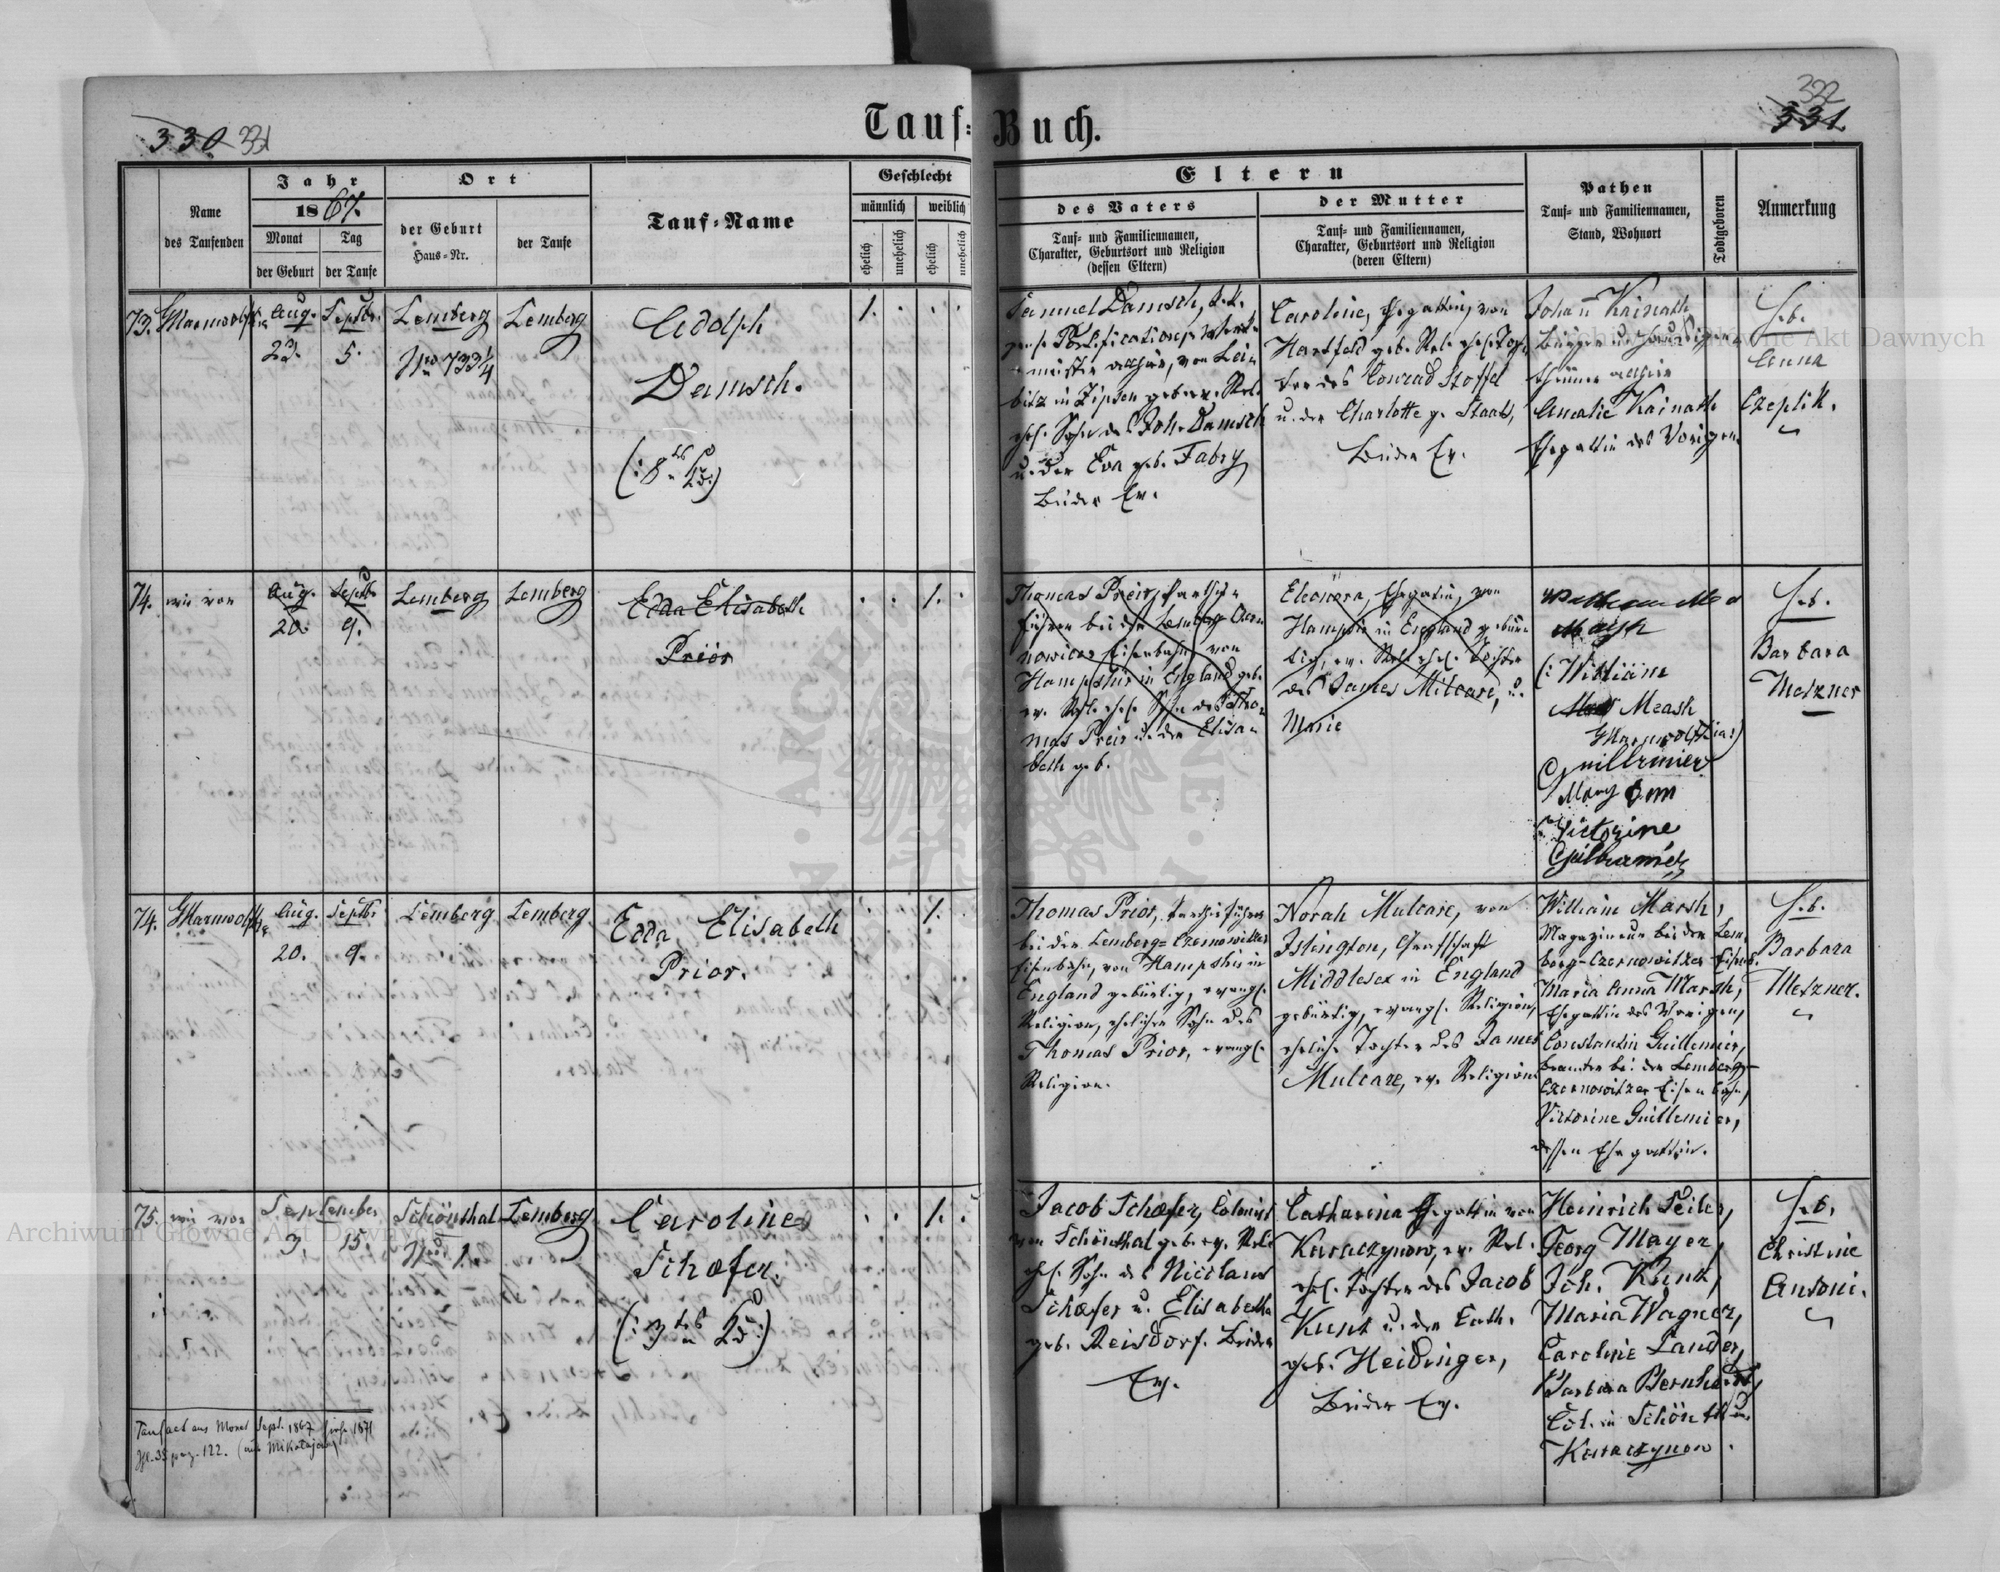 Tauf-Buch.
330 331
332
331.
Jahr
1867.
Ort
Geschlecht
Eltern
Name
des Taufenden
Monat
der Geburt
Tag
der Taufe
der Geburt
Haus-Nr.
der Taufe
Tauf-Name
männlich
weiblich
ehelich
unehelich
ehelich
unehelich
des Vaters
Tauf- und Familiennamen,
Charakter, Geburtsort und Religion
(dessen Eltern)
der Mutter
Tauf- und Familiennamen,
Charakter, Geburtsort und Religion
(deren Eltern)
Pathen
Tauf- und Familiennamen,
Stand, Wohnort
Todtgeboren
Anmerkung
73.
Aug.
23.
Septbr.
5.
Lemberg
Nro 733 1/4
Lemberg
Adolph
Damsch.
(: 8tes Kd:)
1.
Samuel Damsch, k. k.
bitz in Zipsen geb. ev. Rel.
ehel. Sohn des Joh. Damsch
u. der Eva geb. Fabry
Beider Ev.
Caroline, Ehegattin, von
Hartfeld geb. Rel. ehel. Toch-
ter des Conrad Stoffel
u. der Charlotte g. Staats,
Beider Ev.
Johann Kainath
Amalie Kainath
Ehegattin des Vorigen
H.b.
Anna
Czeplik.
74.
wie vor
Aug.
20.
Septbr
9.
Lemberg
Lemberg
Edda Elisabeth
Prior
1.
Thomas Preis, Parthie-
führer bei der Lemberg Czer-
nowicer Eisenbahn, von
Hampshir in England geb.
ev. Rel. ehel. Sohn des Tho-
mas Preis u. der Elisa-
beth geb.
Eleonora, Ehegattin, von
Hampsir in England gebür-
tig, ev. Rel. ehel. Tochter
des James Milcare, u.
Marie
(: William
Meash
Guillemier
Mary Ann
Victorine
Guillamier
H.b.
Barbara
Metzner
74.
Aug.
20.
Septbr
9.
Lemberg
Lemberg
Edda Elisabeth
Prior.
1.
Thomas Prior, Parthieführer
bei der Lemberg-Czernowitzer
Eisenbahn, von Hampshir in
England gebürtig, evangl.
Religion, ehelicher Sohn des
Thomas Prior, evangl.
Religion.
Norah Mulcare, von
Islington, Grafschaft
Middlesex in England
gebürtig, evangl. Religion,
eheliche Tochter des James
Mulcare, ev. Religion
William Marsh,
Magazineur bei der Lem-
berg-Czernowitzer Eisenb.
Maria Anna Marsh,
Ehegattin des Vorigen,
Constantin Guillemier,
Beamter bei der Lemberg-
Czernowitzer Eisenbahn,
Victorine Guillemier,
dessen Ehegattin.
H.b.
Barbara
Metzner.
75.
wie vor
September
3.
15.
Schönthal
Nro 1.
Lemberg
Caroline
Schæfer.
(: 3tes Kd:)
1.
Jacob Schæfer, Colonist
von Schönthal geb. ev. Rel.
ehel. Sohn des Nicolaus
Schæfer u. Elisabetha
geb. Reisdorf. Beider
Ev.
Catharina Ehegattin von
Karaczynow, ev. Rel.
ehel. Tochter des Jacob
Kunt u. der Cath.
geb. Heidinger,
Beider Ev.
Heinrich Seiler,
Georg Mayer,
Joh. Kuntz,
Maria Wagner,
Caroline Sander,
Barbara Bernhardt,
Col. in Schönthal u.
Karaczynow.
H.b.
Christine
Antoni.
Taufact aus Monat Sept. 1867 siehe 1871
pag. 122.
Archiwum Główne Akt Dawnych
Archiwum Główne Akt Dawnych